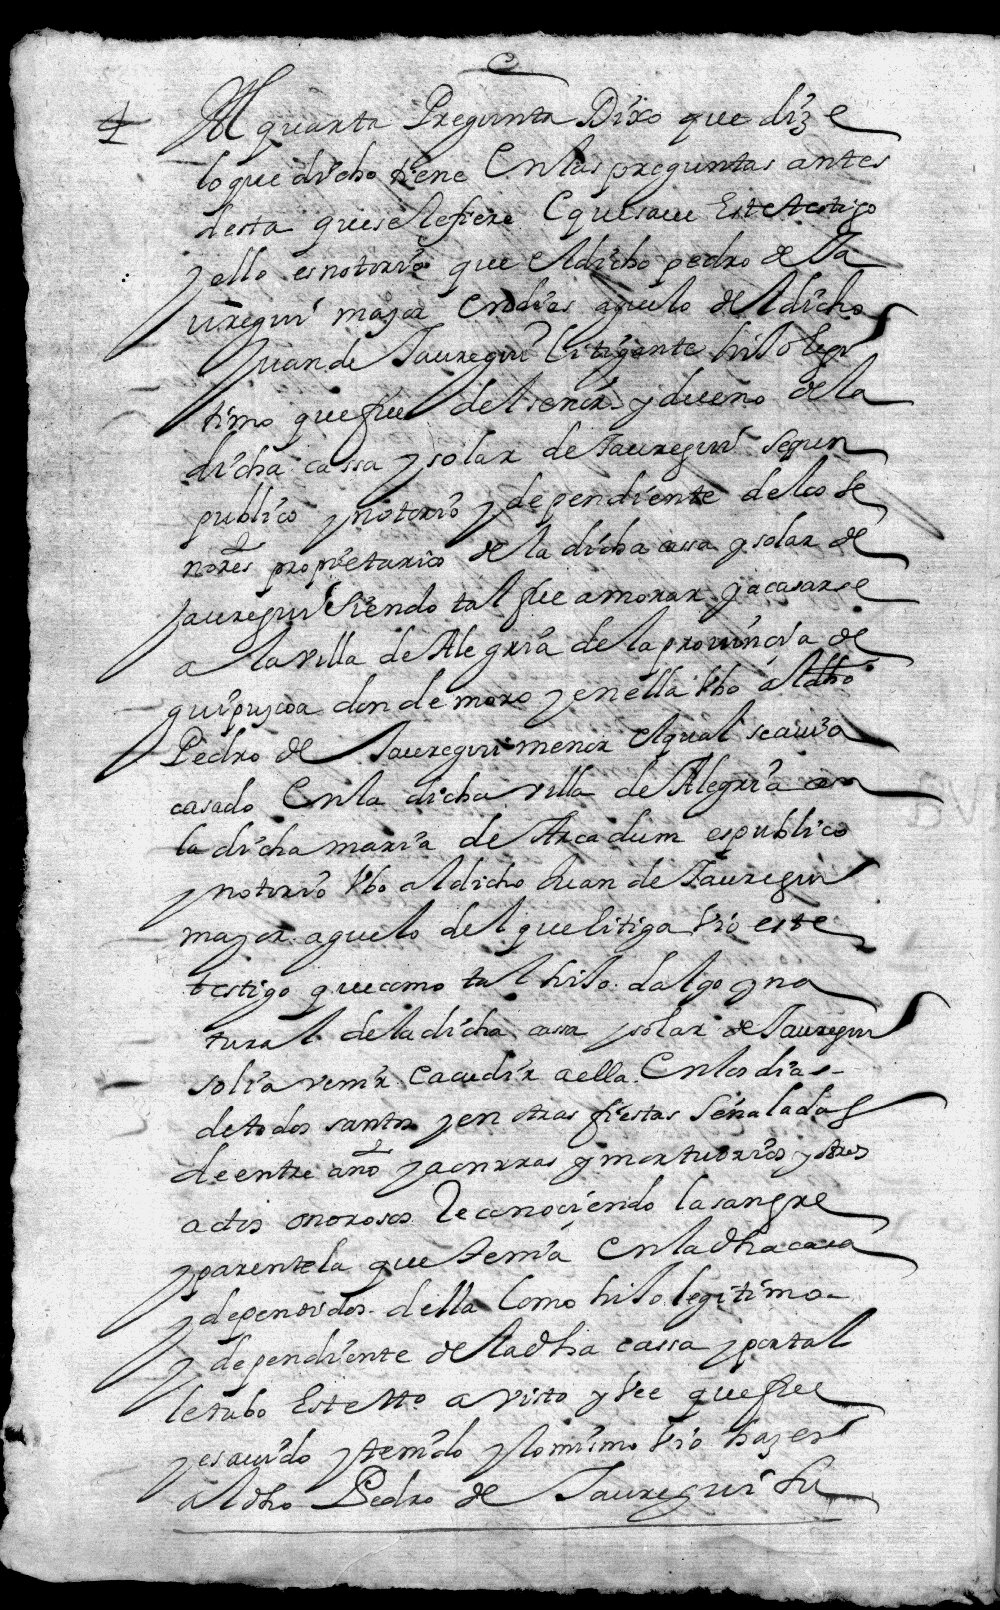 4 A la quarta Pregunta Dixo que dize
lo que dicho tiene En las preguntas antes
desta que se Refiere E que saue Este testigo
y ello es notorio que El dicho pedro de Ja
uregui mayor En dias aguelo del dicho
Juan de Jauregui Litigante hijo legi
timo que fue del señor y dueño de la
dicha cassa y solar de Jauregui segun
publico y notorio y dependiente de los se
ñores propietarios de la dicha casa y solar de
Jauregui siendo tal fue a morar y a casarse
a la villa de Alegria de la prouincia de
guipuzcoa donde moro y en ella vbo al dho
Pedro de Jauregui menor El qual se auia
casado En la dicha villa de Alegria con
la dicha maria de Arcadum es publico
y notorio vbo al dicho Juan de Jauregui
mayor aguelo del que litiga vio este
testigo que como tal hijo dalgo y na
tural de la dicha casa y solar de Jauregui
solia venir E acudir a ella En los dias
de todos santos y en otras fiestas señaladas
de entre año y a onrras y mortuorios y otros
actos onorosos Reconociendo la sangre
y parentela que tenia En la dha casa
y dependidos della Como hijo legitimo
y dependiente de la dha cassa y por tal
le tubo Este tto a visto y vee que fue
y es auido y tenido y lo mismo vio hazer
al dho Pedro de Jauregui su